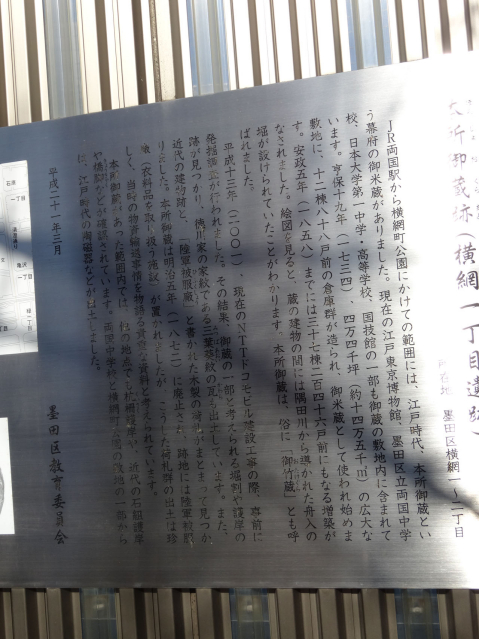 本所御蔵跡(横網一丁目遺跡)
所在地 墨田区横網一~二丁目
JR両国駅から横網町公園にかけての範囲には、江戸時代、本所御蔵とい
う幕府の御米蔵がありました。現在の江戸東京博物館、墨田区立両国中学
校、日本大学第一中学・高等学校、国技館の一部も御蔵の敷地内に含まれて
います。享保十九年(一七三四)、四万四千坪(約十四万五千㎡)の広大な
敷地に、十二棟八十八戸前の倉庫群が造られ、御米蔵として使われ始めま
す。安政五年(一八五八)までには三十七棟二百四十六戸前にもなる増築が
なされました。絵図を見ると、蔵の建物の間には隅田川から導かれた舟入の
堀が設けられていたことがわかります。本所御蔵は、俗に「御竹蔵」とも呼
ばれました。
平成十三年(二〇〇一)、現在のNTTドコモビル建設工事の際、事前に
発掘調査が行われました。その結果、御蔵の一部と考えられる堀割や護岸の
跡が見つかり、徳川家の家紋である三葉葵紋の瓦が出土しています。また、
近代の建物跡と、「陸軍被服廠」と書かれた木製の荷札がまとまって見つか
りました。本所御蔵は明治五年(一八七二)に廃止され、跡地には陸軍被服
廠(衣料品を取り扱う施設)が置かれましたが、こうした荷札群の出土は珍
しく、当時の物資輸送事情を物語る貴重な資料と考えられています。
本所御蔵があった範囲内では、他の地点でも杭柵護岸や、近代の石組護岸
や橋梁などが確認されています。両国中学校と横網町公園の敷地の一部から
は、江戸時代の陶磁器などが出土しました。
平成二十一年三月
墨田区教育委員会
石原
一丁目
亀沢
一丁目
緑一丁目